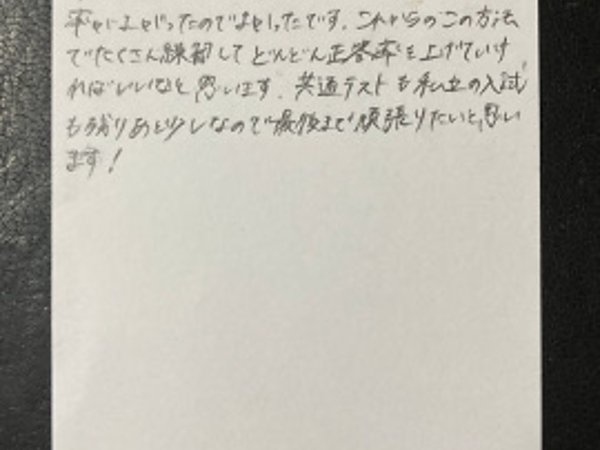 率が上がったのでよかったです。これからのこの方法
でたくさん練習してどんどん正答率を上げていけ
ればいいなと思います。共通テストも私立の入試
も残りあと少しなので最後まで頑張りたいと思い
ます！